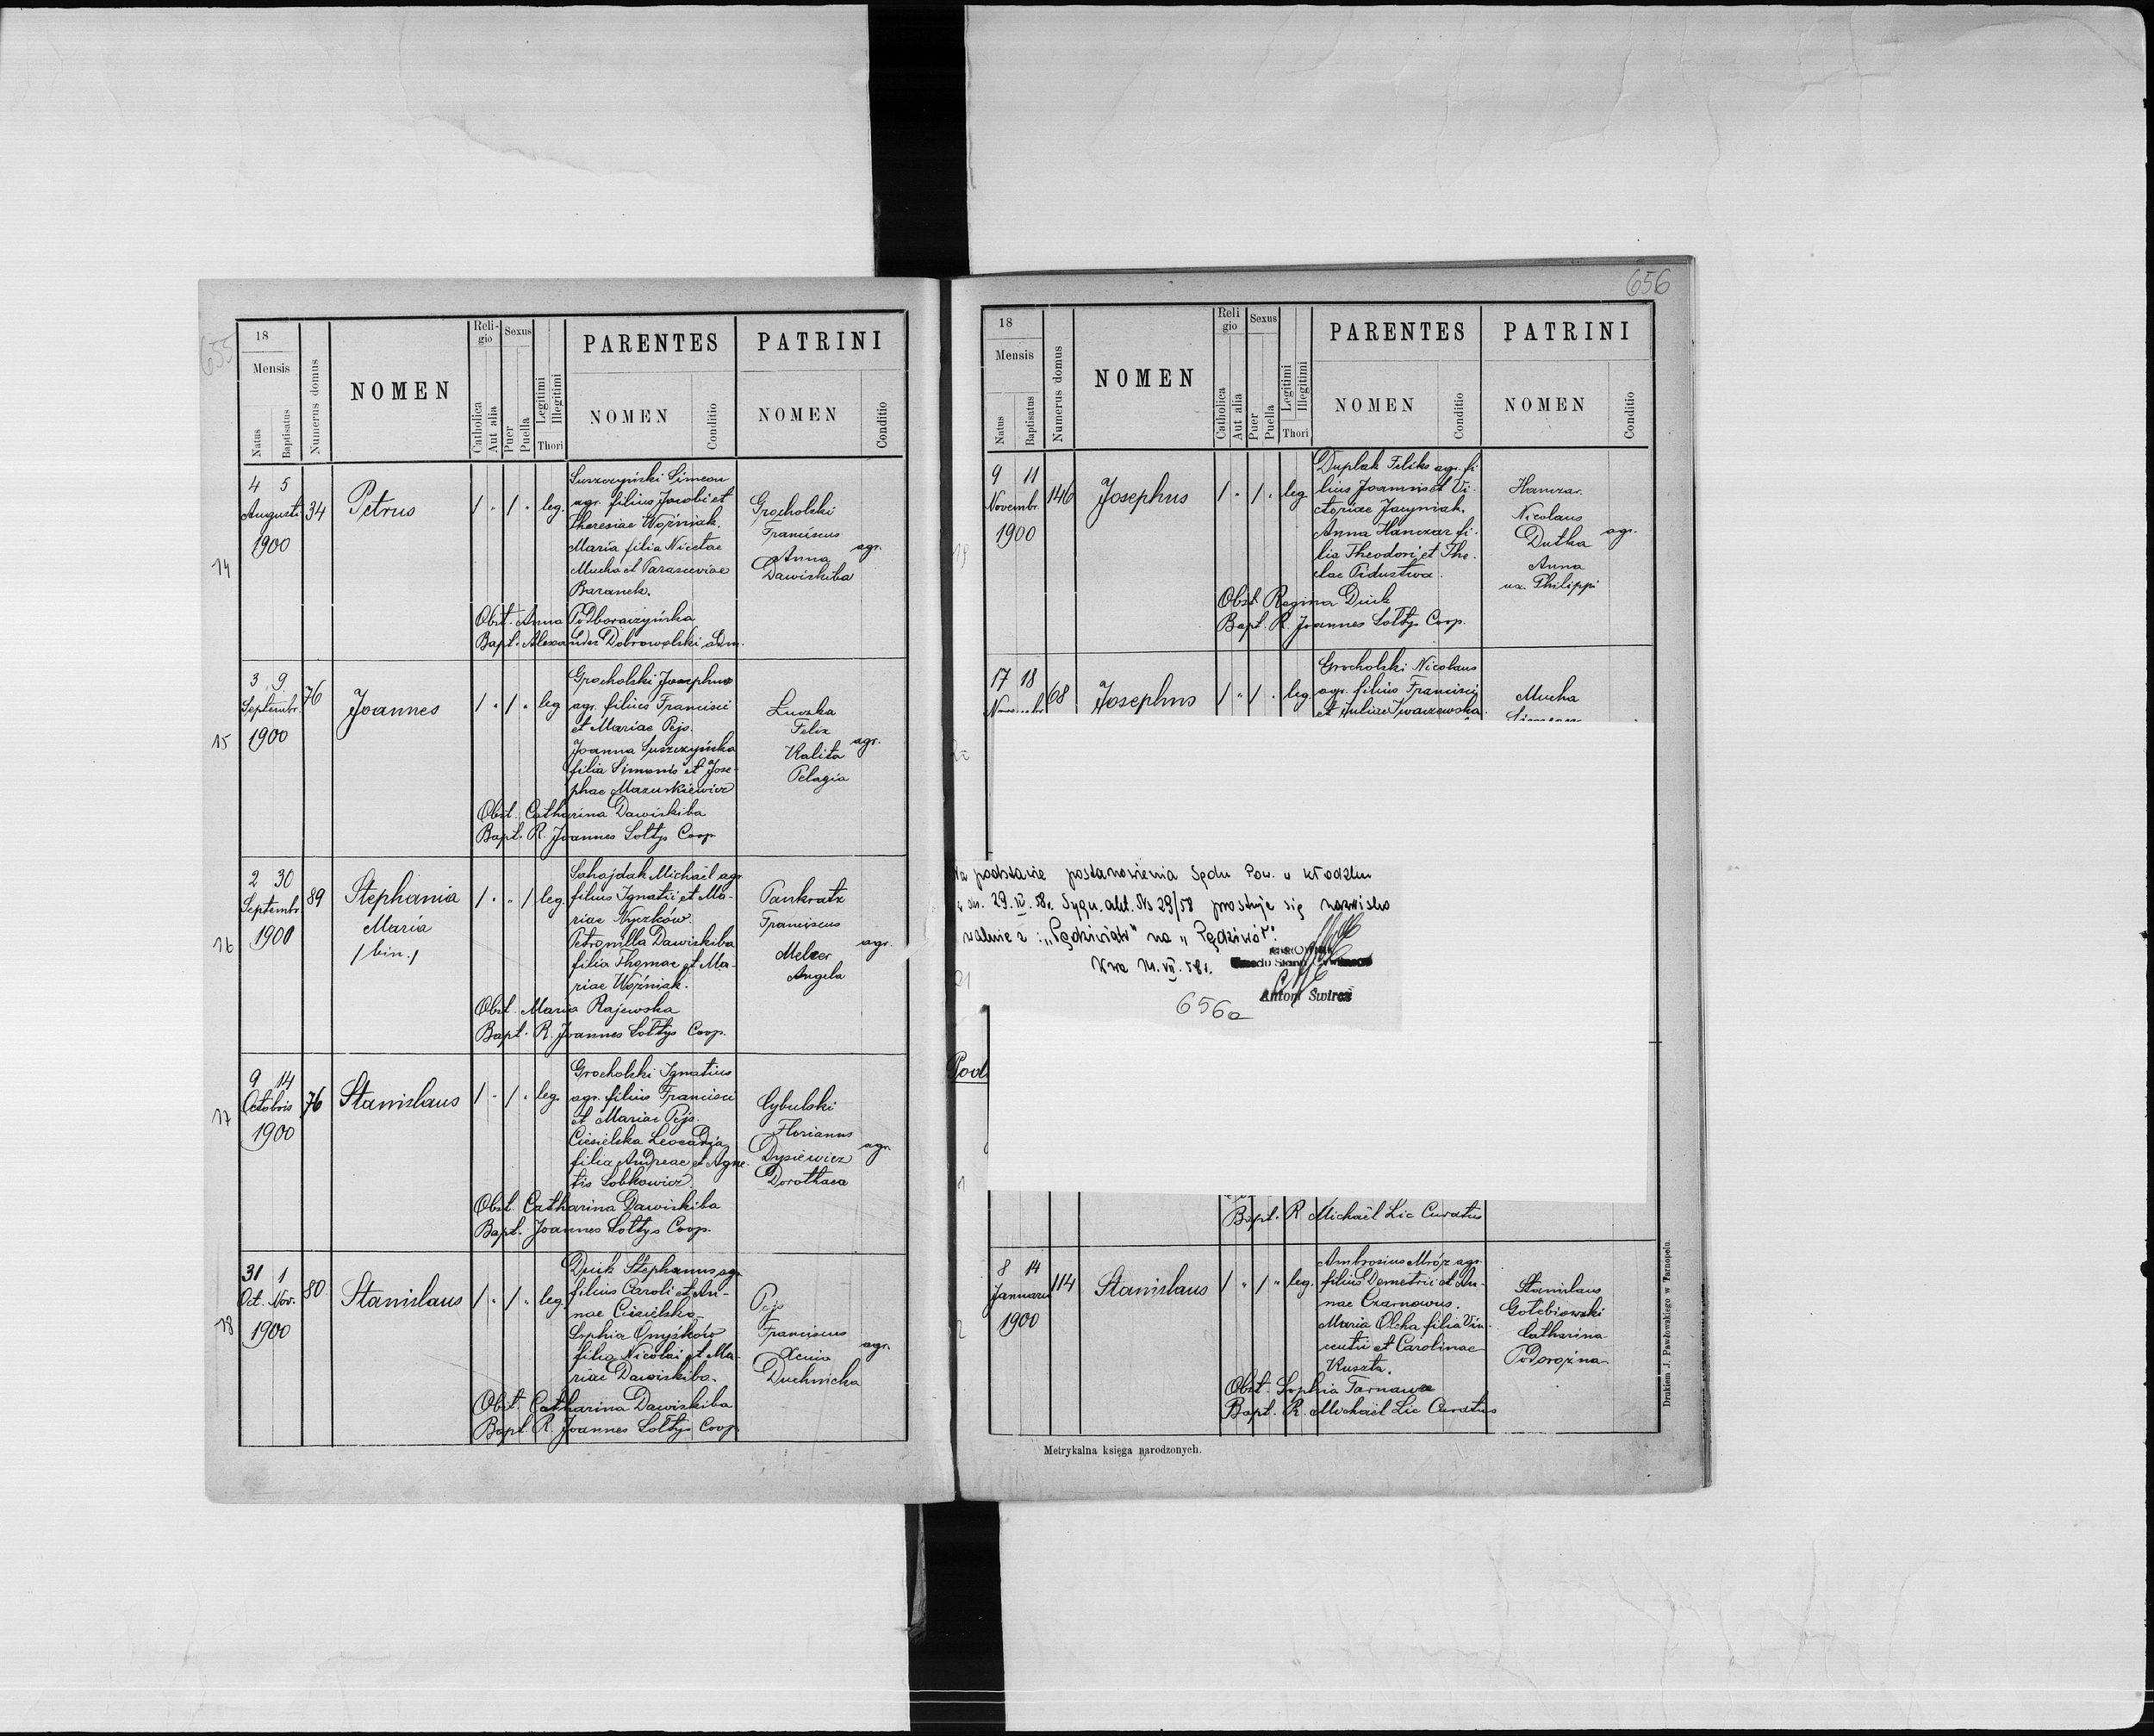 655
18
Mensis
Natus
Baptisatus
Numerus domus
NOMEN
Reli-
gio
Catholica
Aut alia
Sexus
Puer
Puella
Legitimi
Illegitimi
Thori
PARENTES
NOMEN
Conditio
PATRINI
NOMEN
Conditio
14
4 5
Augusti
1900
34
Petrus
/ " / " leg.
Suszczyński Simeon
agr. filius Jacobi et
Theresiae Woźniak.
Maria filia Nicetae
Mucha et Parasceviae
Baranek.
Grocholski
Franciscus
Anna
Dawiskiba
agr.
Obst. Anna Podboraczyńska
Bapt. Alexander Dobrowolski Adm.
15
3 9
Septembr.
1900
76
Joannes
/ " / " leg
Grocholski Josephus
agr. filius Francisci
et Mariae Pejs.
Joanna Suszczyńska
filia Simonis et Jose-
phae Mazurkiewicz
Luczka
Felix
Kalita
Pelagia
agr.
Obst. Catharina Dawiskiba
Bapt. R. Joannes Sołtys Coop.
16
2 30
Septembr.
1900
89
Stephania
Maria
/bin./
/ " " / leg.
Sahajdak Michaël agr.
filius Ignatii et Ma-
riae Nyczków.
Petronilla Dawiskiba
filia Thomae et Ma-
riae Woźniak.
Pankratz
Franciscus
Melzer
Angela
agr.
Obst. Maria Rajewska
Bapt. R. Joannes Sołtys Coop.
17
9 14
Octobris
1900
76
Stanislaus
/ " / " leg.
Grocholski Ignatius
agr. filius Francisci
et Mariae Pejs.
Ciesielska Leocadja
filia Andreae et Agne-
tis Sobkowicz.
Cybulski
Florianus
Dysiewicz
Dorothaea
agr.
Obst. Catharina Dawiskiba
Bapt. Joannes Sołtys Coop.
18
31 1
Oct. Nov.
1900
80
Stanislaus
/ " / " leg.
Duik Stephanus agr.
filius Caroli et An-
nae Ciesielska
Sophia Onyśków
filia Nicolai et Ma-
riae Dawiskiba.
Pejs
Franciscus
Xenia
Duchnicka
agr.
Obst. Catharina Dawiskiba
Bapt. R. Joannes Sołtys Coop.
656
18
Mensis
Natus
Baptisatus
Numerus domus
NOMEN
Reli
gio
Catholica
Aut alia
Sexus
Puer
Puella
Legitimi
Illegitimi
Thori
PARENTES
NOMEN
Conditio
PATRINI
NOMEN
Conditio
19
9 11
Novembr.
1900
146
Josephus
/ " / " leg
Duplak Feliks agr. fi
lius Joannis et Vi-
ctoriae Jacyniak.
Anna Hanczar fi-
lia Theodori et The-
clae Pidustwa.
Hanczar
Nicolaus
Dutka
Anna
ux. Philippi
agr.
Obst. Regina Duik
Bapt. R. Joannes Sołtys Coop.
17 18
68
Josephus
/ " / " leg.
Grocholski Nicolaus
agr. filius Francisci
et Juliae Iwaczewska
Mucha
podstawie postanowienia Sądu Pow. w Kłodzku
29.IV.58r. Sygn. akt. Ns 29/58 prostuje się nazwisko
"Pędziwiatr" na "Pędziwół".
Antoni Świrez
656a
Pod
Bapt. R. Michaël Lic Curatus
8 14
Januarii
1900
114
Stanislaus
/ " / " leg.
Ambrosius Mróz agr.
filius Demetrii et An-
nae Czarnowus.
Maria Olcha filia Vin-
centii et Carolinae
Kuszta.
Stanislaus
Gołębiowski
Catharina
Podorożna
Obst. Sophia Tarnawa
Bapt. R. Michaël Lic Curatus
Metrykalna księga narodzonych.
Drukiem J. Pawłowskiego w Tarnopolu.